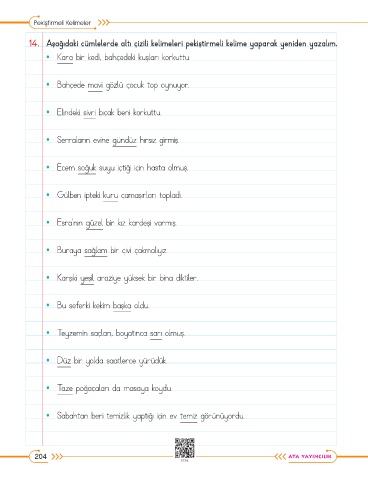 Pekiştirmeli Kelimeler
14. Aşağıdaki cümlelerde altı çizili kelimeleri pekiştirmeli kelime yaparak yeniden yazalım.
• Kara bir kedi, bahçedeki kuşları korkuttu.
• Bahçede mavi gözlü çocuk top oynuyor.
• Elindeki sivri bıcak beni korkuttu.
• Serraların evine gündüz hırsız girmiş.
• Ecem soğuk suyu içtiği için hasta olmuş.
• Gülben ipteki kuru çamaşırları topladı.
• Esra'nın güzel bir kız kardeşi varmış.
• Buraya sağlam bir çivi çakmalıyız.
• Karşıki yeşil araziye yüksek bir bina diktiler.
• Bu seferki kekim başka oldu.
• Teyzemin saçları, boyatınca sarı olmuş.
• Düz bir yolda saatlerce yürüdük.
• Taze poğaçaları da masaya koydu.
• Sabahtan beri temizlik yaptığı için ev temiz görünüyordu.
204
ATA YAYINCILIK